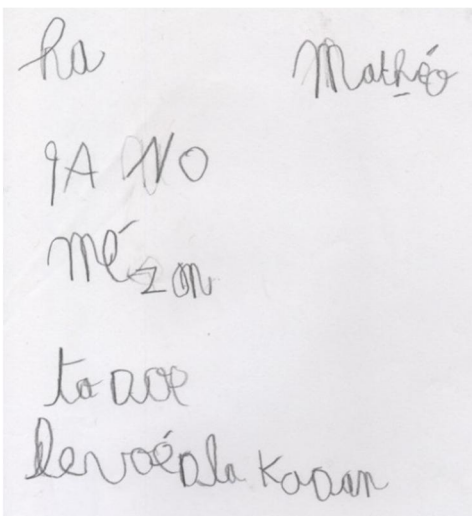 ha Mathéo
qA NO
mézon
levoéDla KaDan